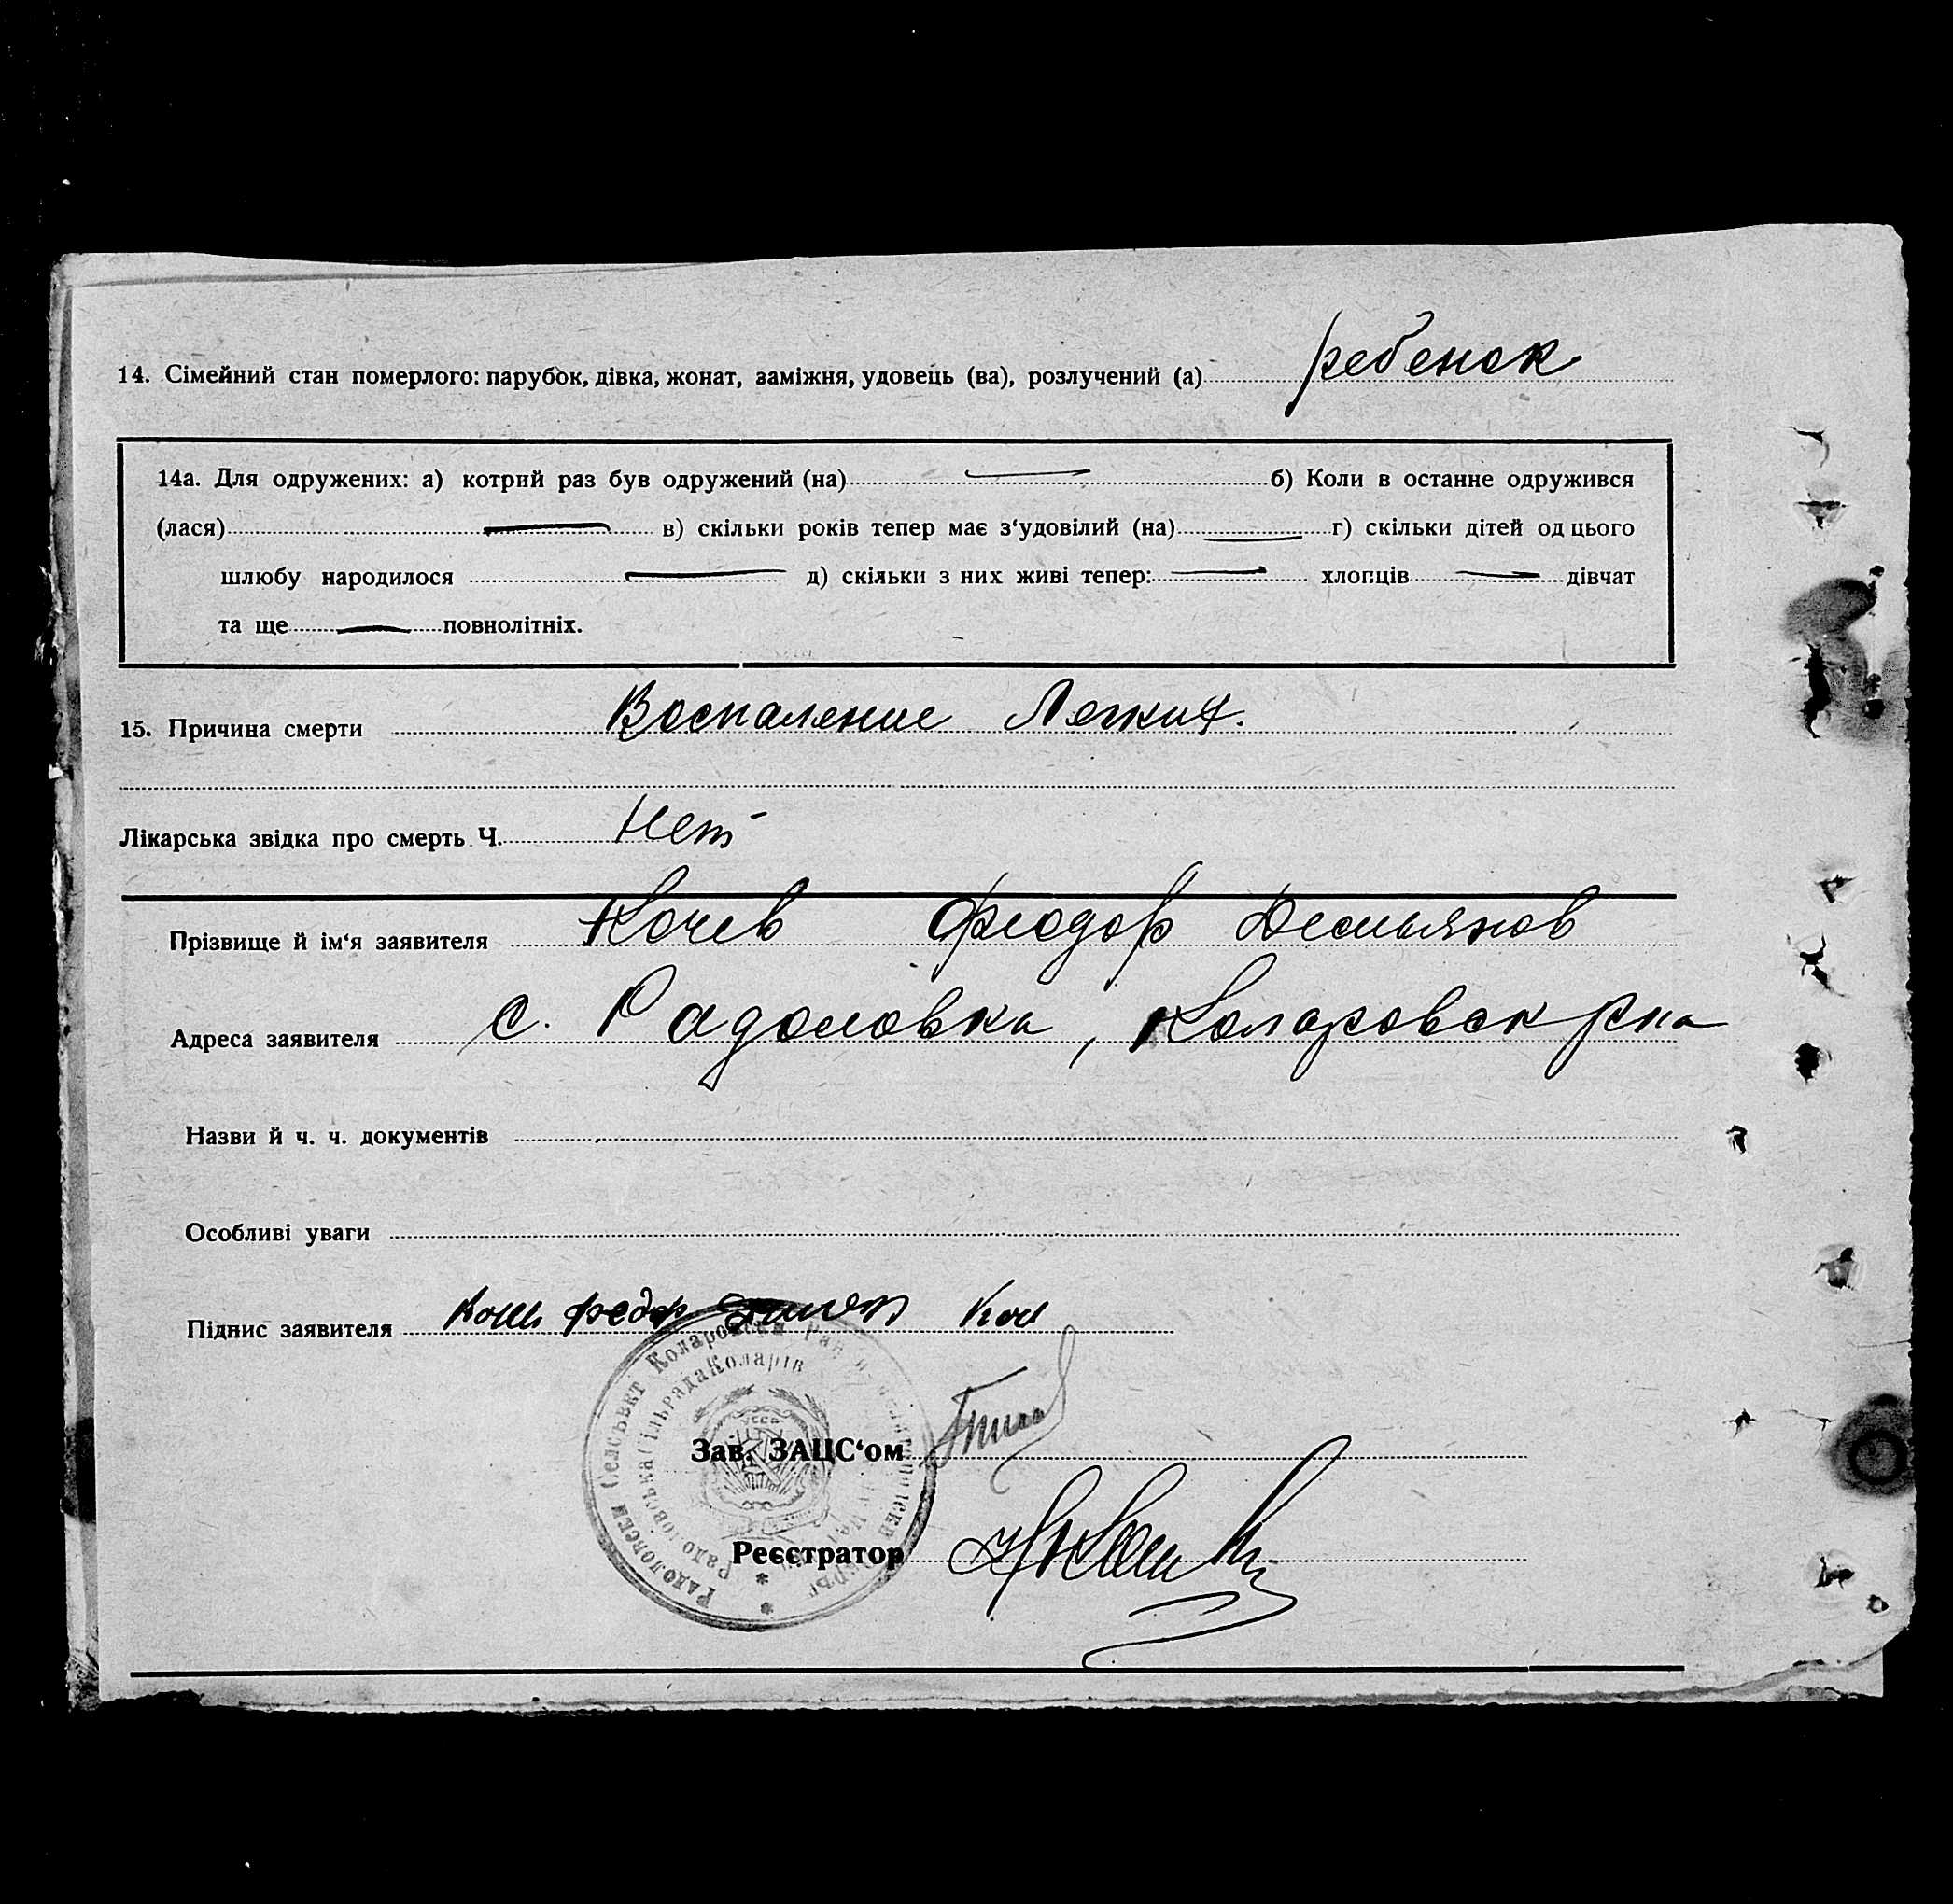 14. Сімейний стан померлого: парубок, дівка, жонат, заміжня, удовець (ва), розлучений (а) ребенок
14а. Для одружених: а) котрий раз був одружений (на) б) Коли в останне одружився
(лася) в) скільки років тепер має з‘удовілий (на) г) скільки дітей од цього
шлюбу народилося д) скільки з них живі тепер: хлопців дівчат
та ще повнолітніх.
15. Причина смерти Воспаление Легких.
Лікарська звідка про смерть Ч. Нет
Прізвище й ім‘я заявителя Кочев Феодор Демьянов
Адреса заявителя с. Радоловка, Коларовск рна
Назви й ч. ч. документів
Особливі уваги
Підпис заявителя федор
Радоловски Селсъвет Коларовски
Радоловська Сільрада Коларів
УССР
Зав. ЗАЦС‘ом
Реєстратор